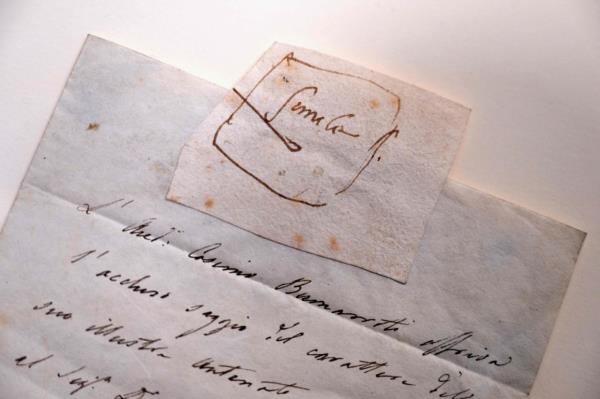 L'Aud.ʳ Cosimo Buonarroti offriva
l'accluso saggio del carattere del
suo illustre antenato
al Sig.ʳ